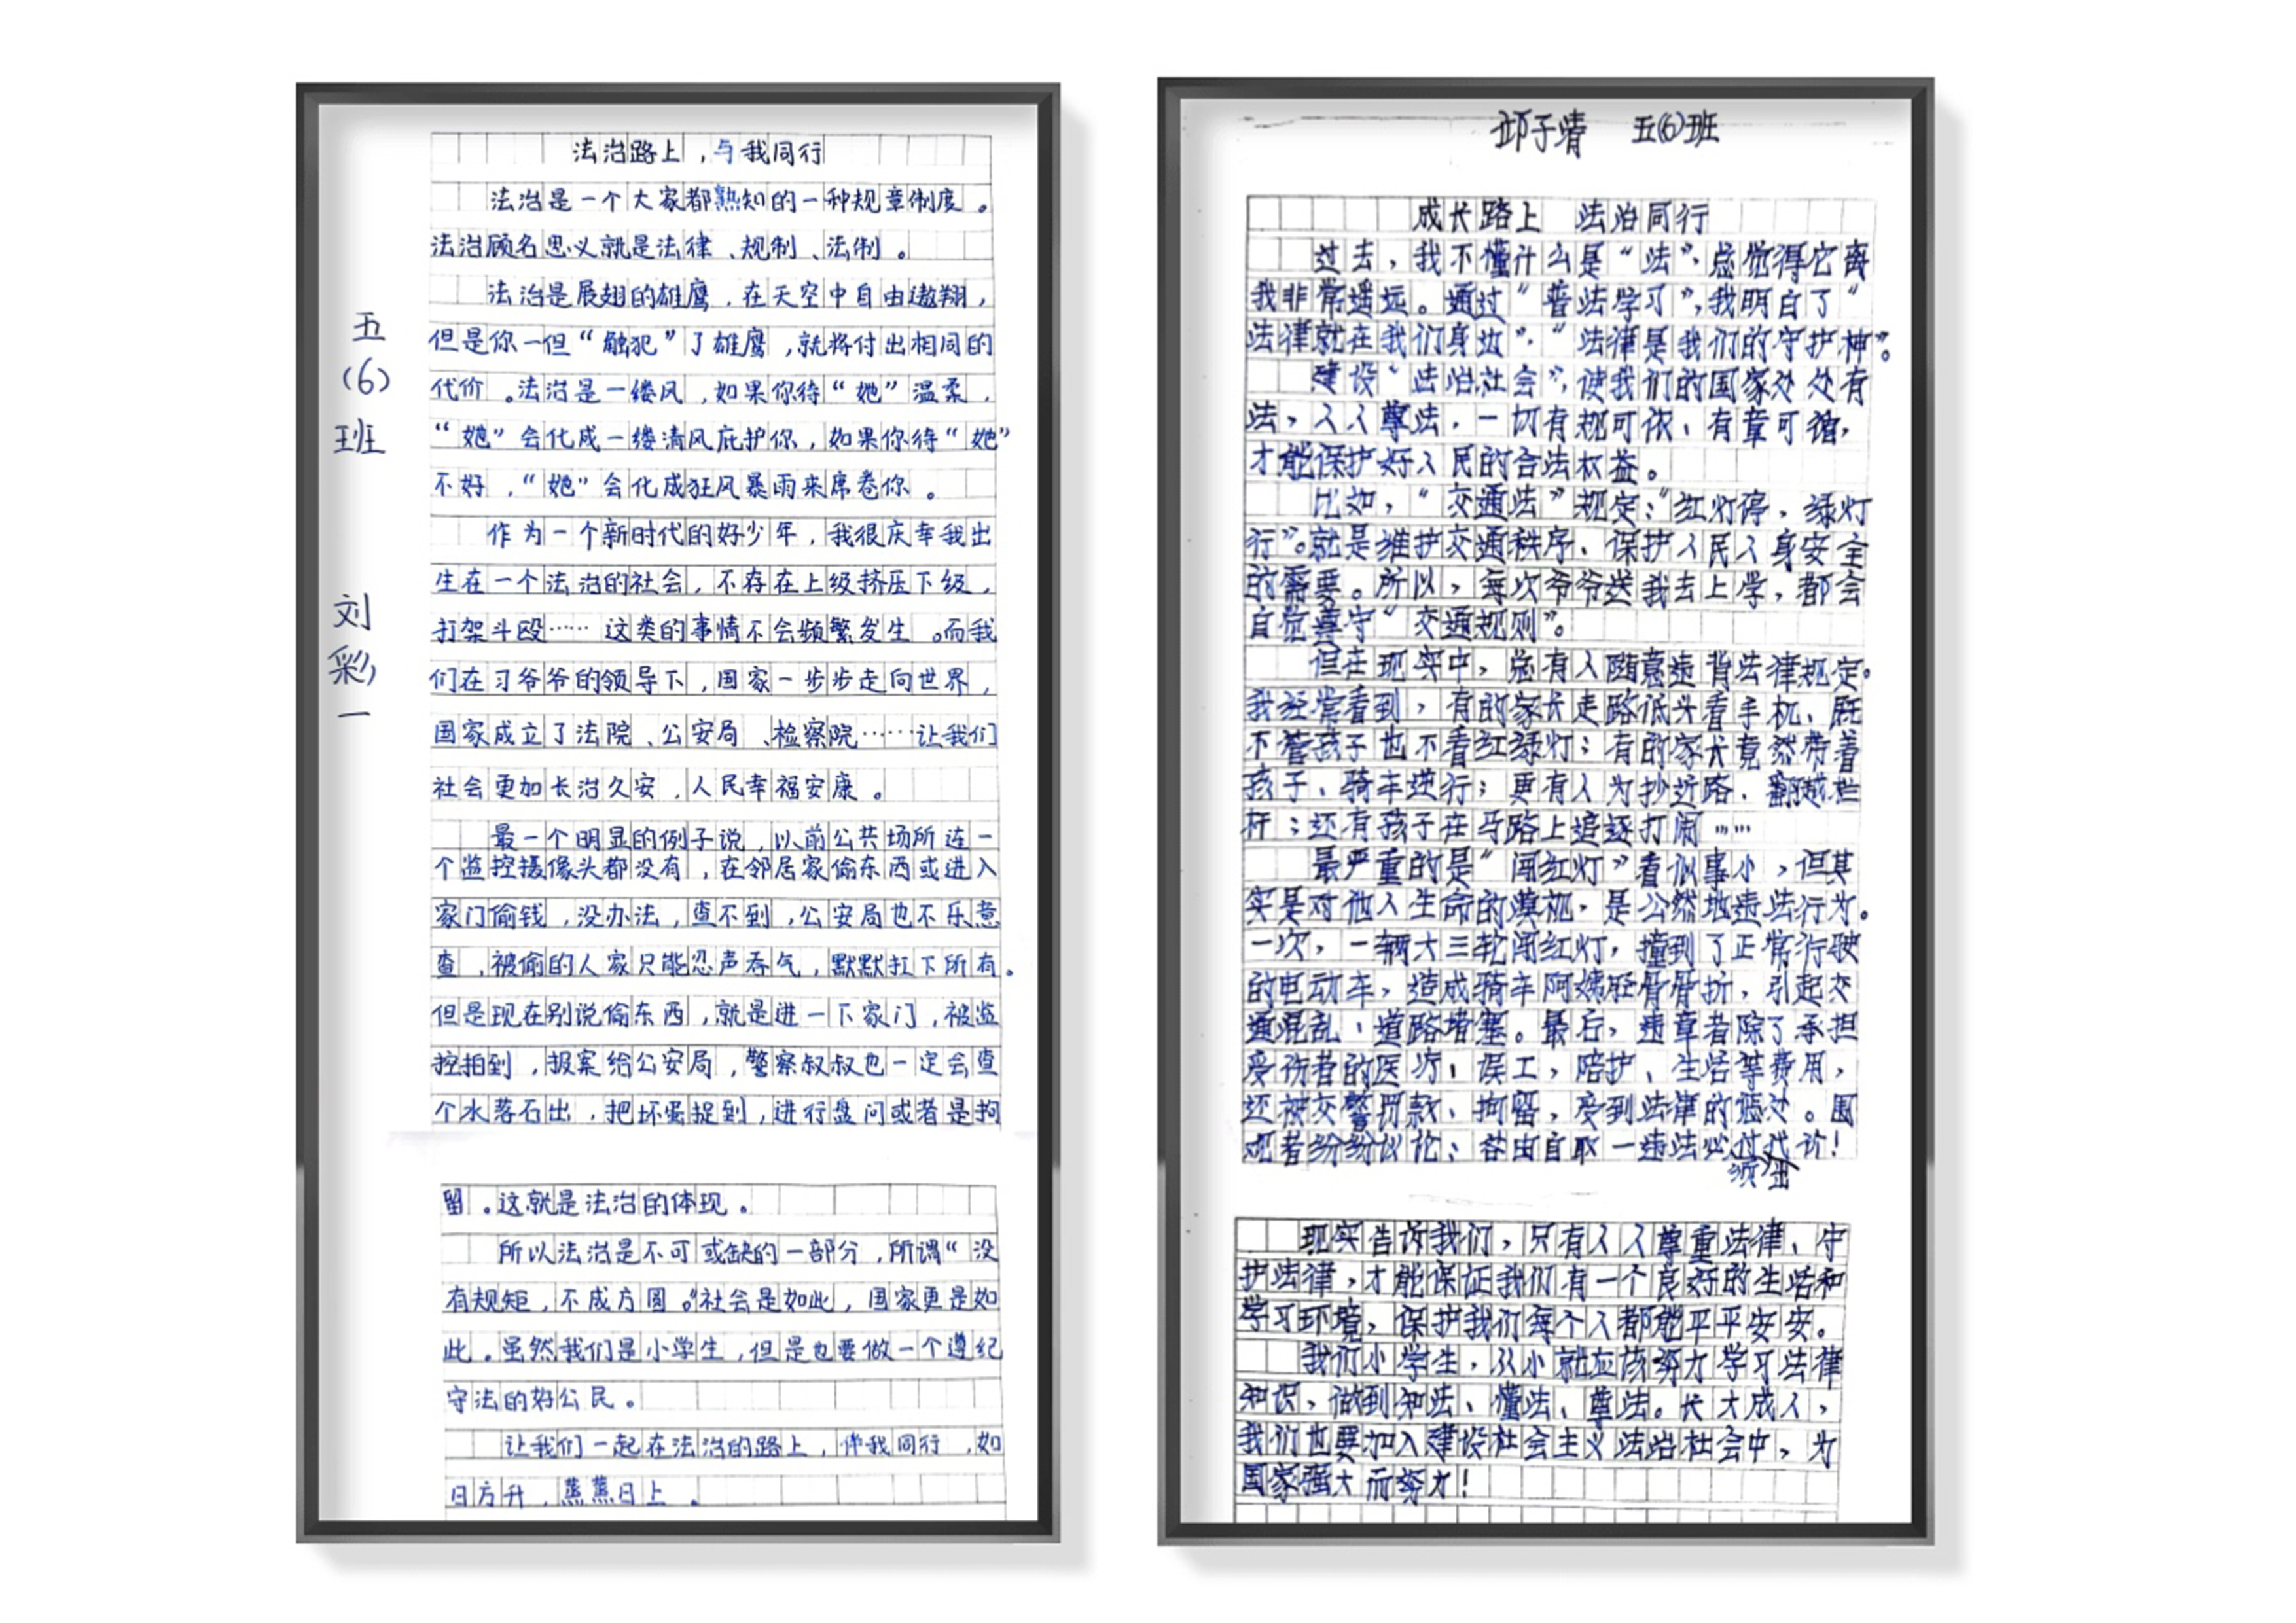 五(6)班 刘彩一
法治路上，与我同行
法治是一个大家都熟知的一种规章制度。
法治顾名思义就是法律、规制、法制。
法治是展翅的雄鹰，在天空中自由遨翔，
但是你一但“触犯”了雄鹰，就将付出相同的
代价。法治是一缕风，如果你待“她”温柔，
“她”会化成一缕清风庇护你，如果你待“她”
不好，“她”会化成狂风暴雨来席卷你。
作为一个新时代的好少年，我很庆幸我出
生在一个法治的社会，不存在上级挤压下级，
打架斗殴……这类的事情不会频繁发生。而我
们在习爷爷的领导下，国家一步步走向世界，
国家成立了法院、公安局、检察院……让我们
社会更加长治久安，人民幸福安康。
最一个明显的例子说，以前公共场所连一
个监控摄像头都没有，在邻居家偷东西或进入
家门偷钱，没办法，查不到，公安局也不乐意
查，被偷的人家只能忍声吞气，默默扛下所有。
但是现在别说偷东西，就是进一下家门，被监
控拍到，报案给公安局，警察叔叔也一定会查
个水落石出，把坏蛋捉到，进行盘问或者是拘
留。这就是法治的体现。
所以法治是不可或缺的一部分，所谓“没
有规矩，不成方圆。”社会是如此，国家更是如
此。虽然我们是小学生，但是也要做一个遵纪
守法的好公民。
让我们一起在法治的路上，伴我同行，如
日方升，蒸蒸日上。
邱子靖 五(6)班
成长路上 法治同行
过去，我不懂什么是“法”，总觉得它离
我非常遥远。通过“普法学习”，我明白了“
法律就在我们身边”，“法律是我们的守护神”。
建设“法治社会”，使我们的国家处处有
法，人人尊法，一切有规可依、有章可循，
才能保护好人民的合法权益。
比如，“交通法”规定：“红灯停，绿灯
行”。就是维护交通秩序、保护人民人身安全
的需要。所以，每次爷爷送我去上学，都会
自觉遵守“交通规则”。
但在现实中，总有人随意违背法律规定。
我经常看到，有的家长走路低头看手机、既
不管孩子也不看红绿灯；有的家长竟然带着
孩子、骑车逆行；更有人为抄近路、翻越栏
杆；还有孩子在马路上追逐打闹……
最严重的是“闯红灯”看似事小，但其
实是对他人生命的漠视，是公然地违法行为。
一次，一辆大三轮闯红灯，撞到了正常行驶
的电动车，造成骑车阿姨胫骨骨折，引起交
通混乱、道路堵塞。最后，违章者除了承担
受伤者的医疗、误工，陪护、生活等费用，
还被交警罚款、拘留，受到法律的惩处。围
观者纷纷议论：咎由自取—违法必须付出代价！
现实告诉我们，只有人人尊重法律、守
护法律，才能保证我们有一个良好的生活和
学习环境，保护我们每个人都能平平安安。
我们小学生，从小就应该努力学习法律
知识，做到知法、懂法、尊法。长大成人，
我们也要加入建设社会主义法治社会中，为
国家强大而努力！